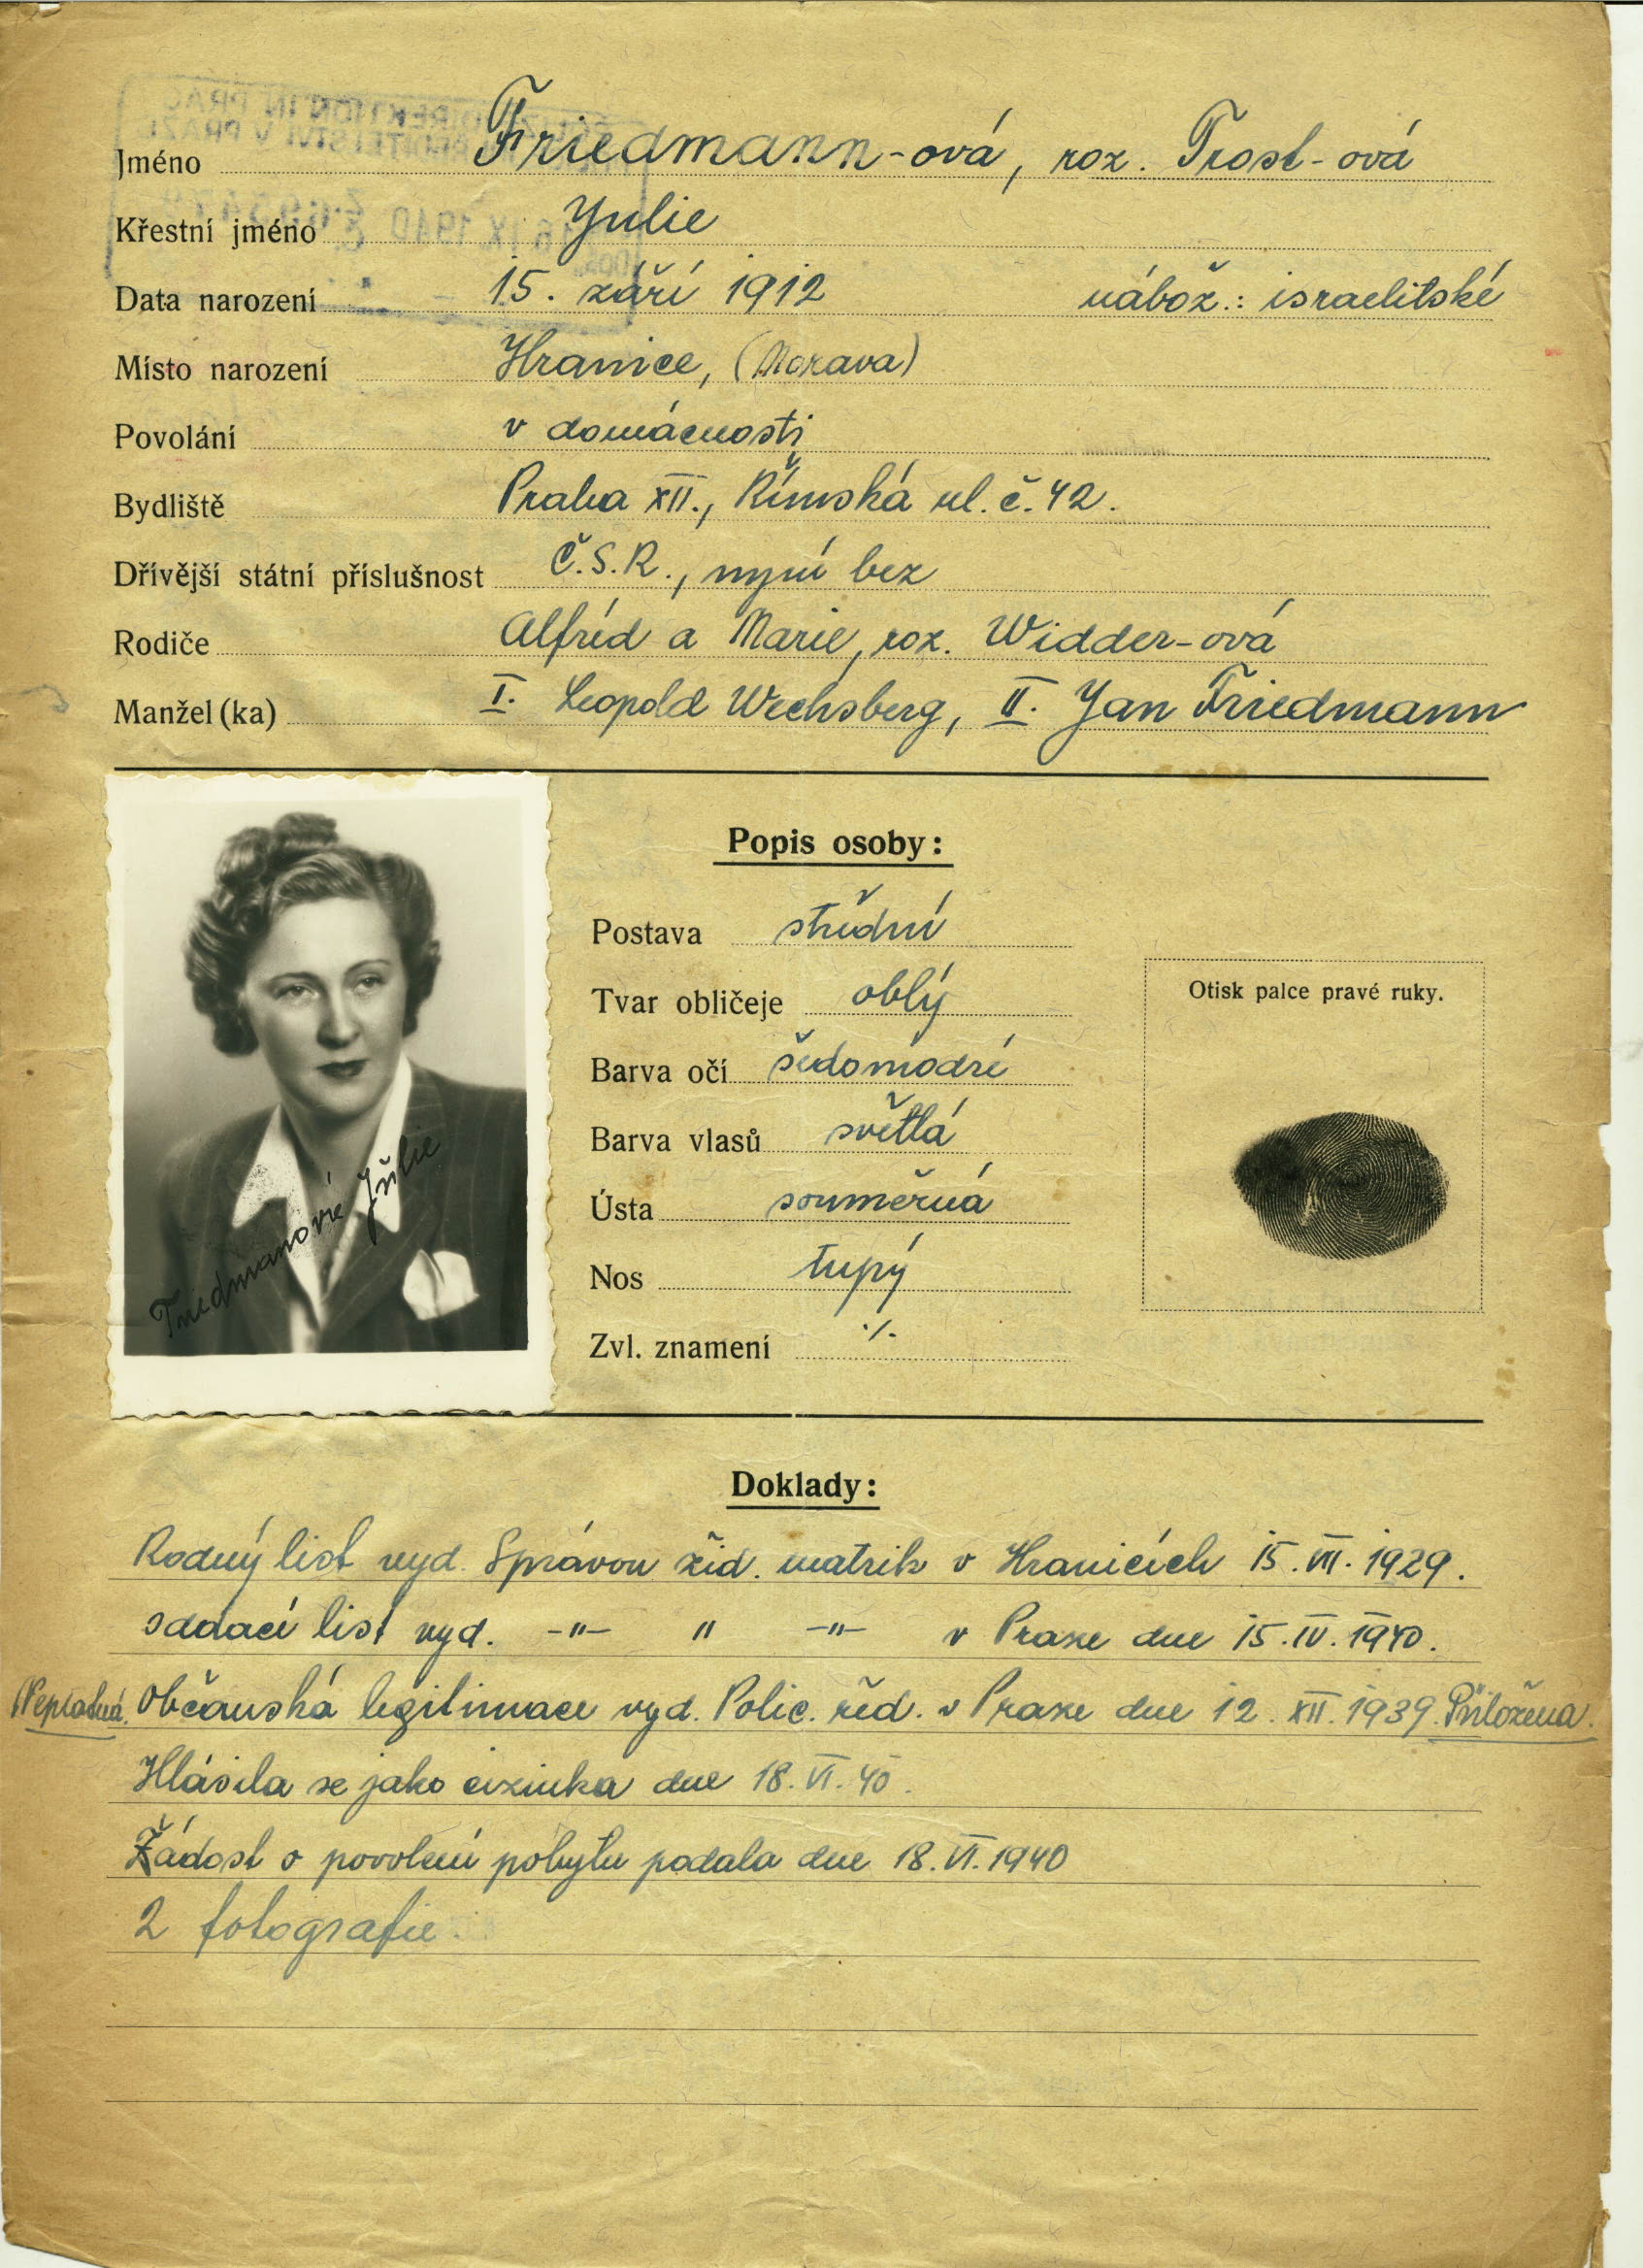 Jméno Friedmann-ová, roz. Trost-ová
Křestní jméno Julie
Data narození 15. září 1912 nábož.: israelitské
Místo narození Hranice, (Morava)
Povolání v domácnosti
Bydliště Praha XII., Římská ul. č. 42.
Dřívější státní příslušnost Č.S.R., nyní bez
Rodiče Alfréd a Marie, roz. Widder-ová
Manžel(ka) I. Leopold Wechsberg, II. Jan Friedmann
Popis osoby:
Postava střední
Tvar obličeje oblý
Barva očí šedomodré
Barva vlasů světlá
Ústa souměrná
Nos tupý
Zvl. znamení ./.
Otisk palce pravé ruky.
Julie
Doklady:
Rodný list vyd. Správou žid. matrik v Hranicích 15. VII. 1929.
oddací list vyd. -"- " -"- v Praze dne 15. IV. 1940.
Neplatná. Občanská legitimace vyd. Polic. řed. v Praze dne 12. XII. 1939. Přiložena.
Hlásila se jako cizinka dne 18. VI. 40.
Žádost o povolení pobytu podala dne 18. VI. 1940
2 fotografie.